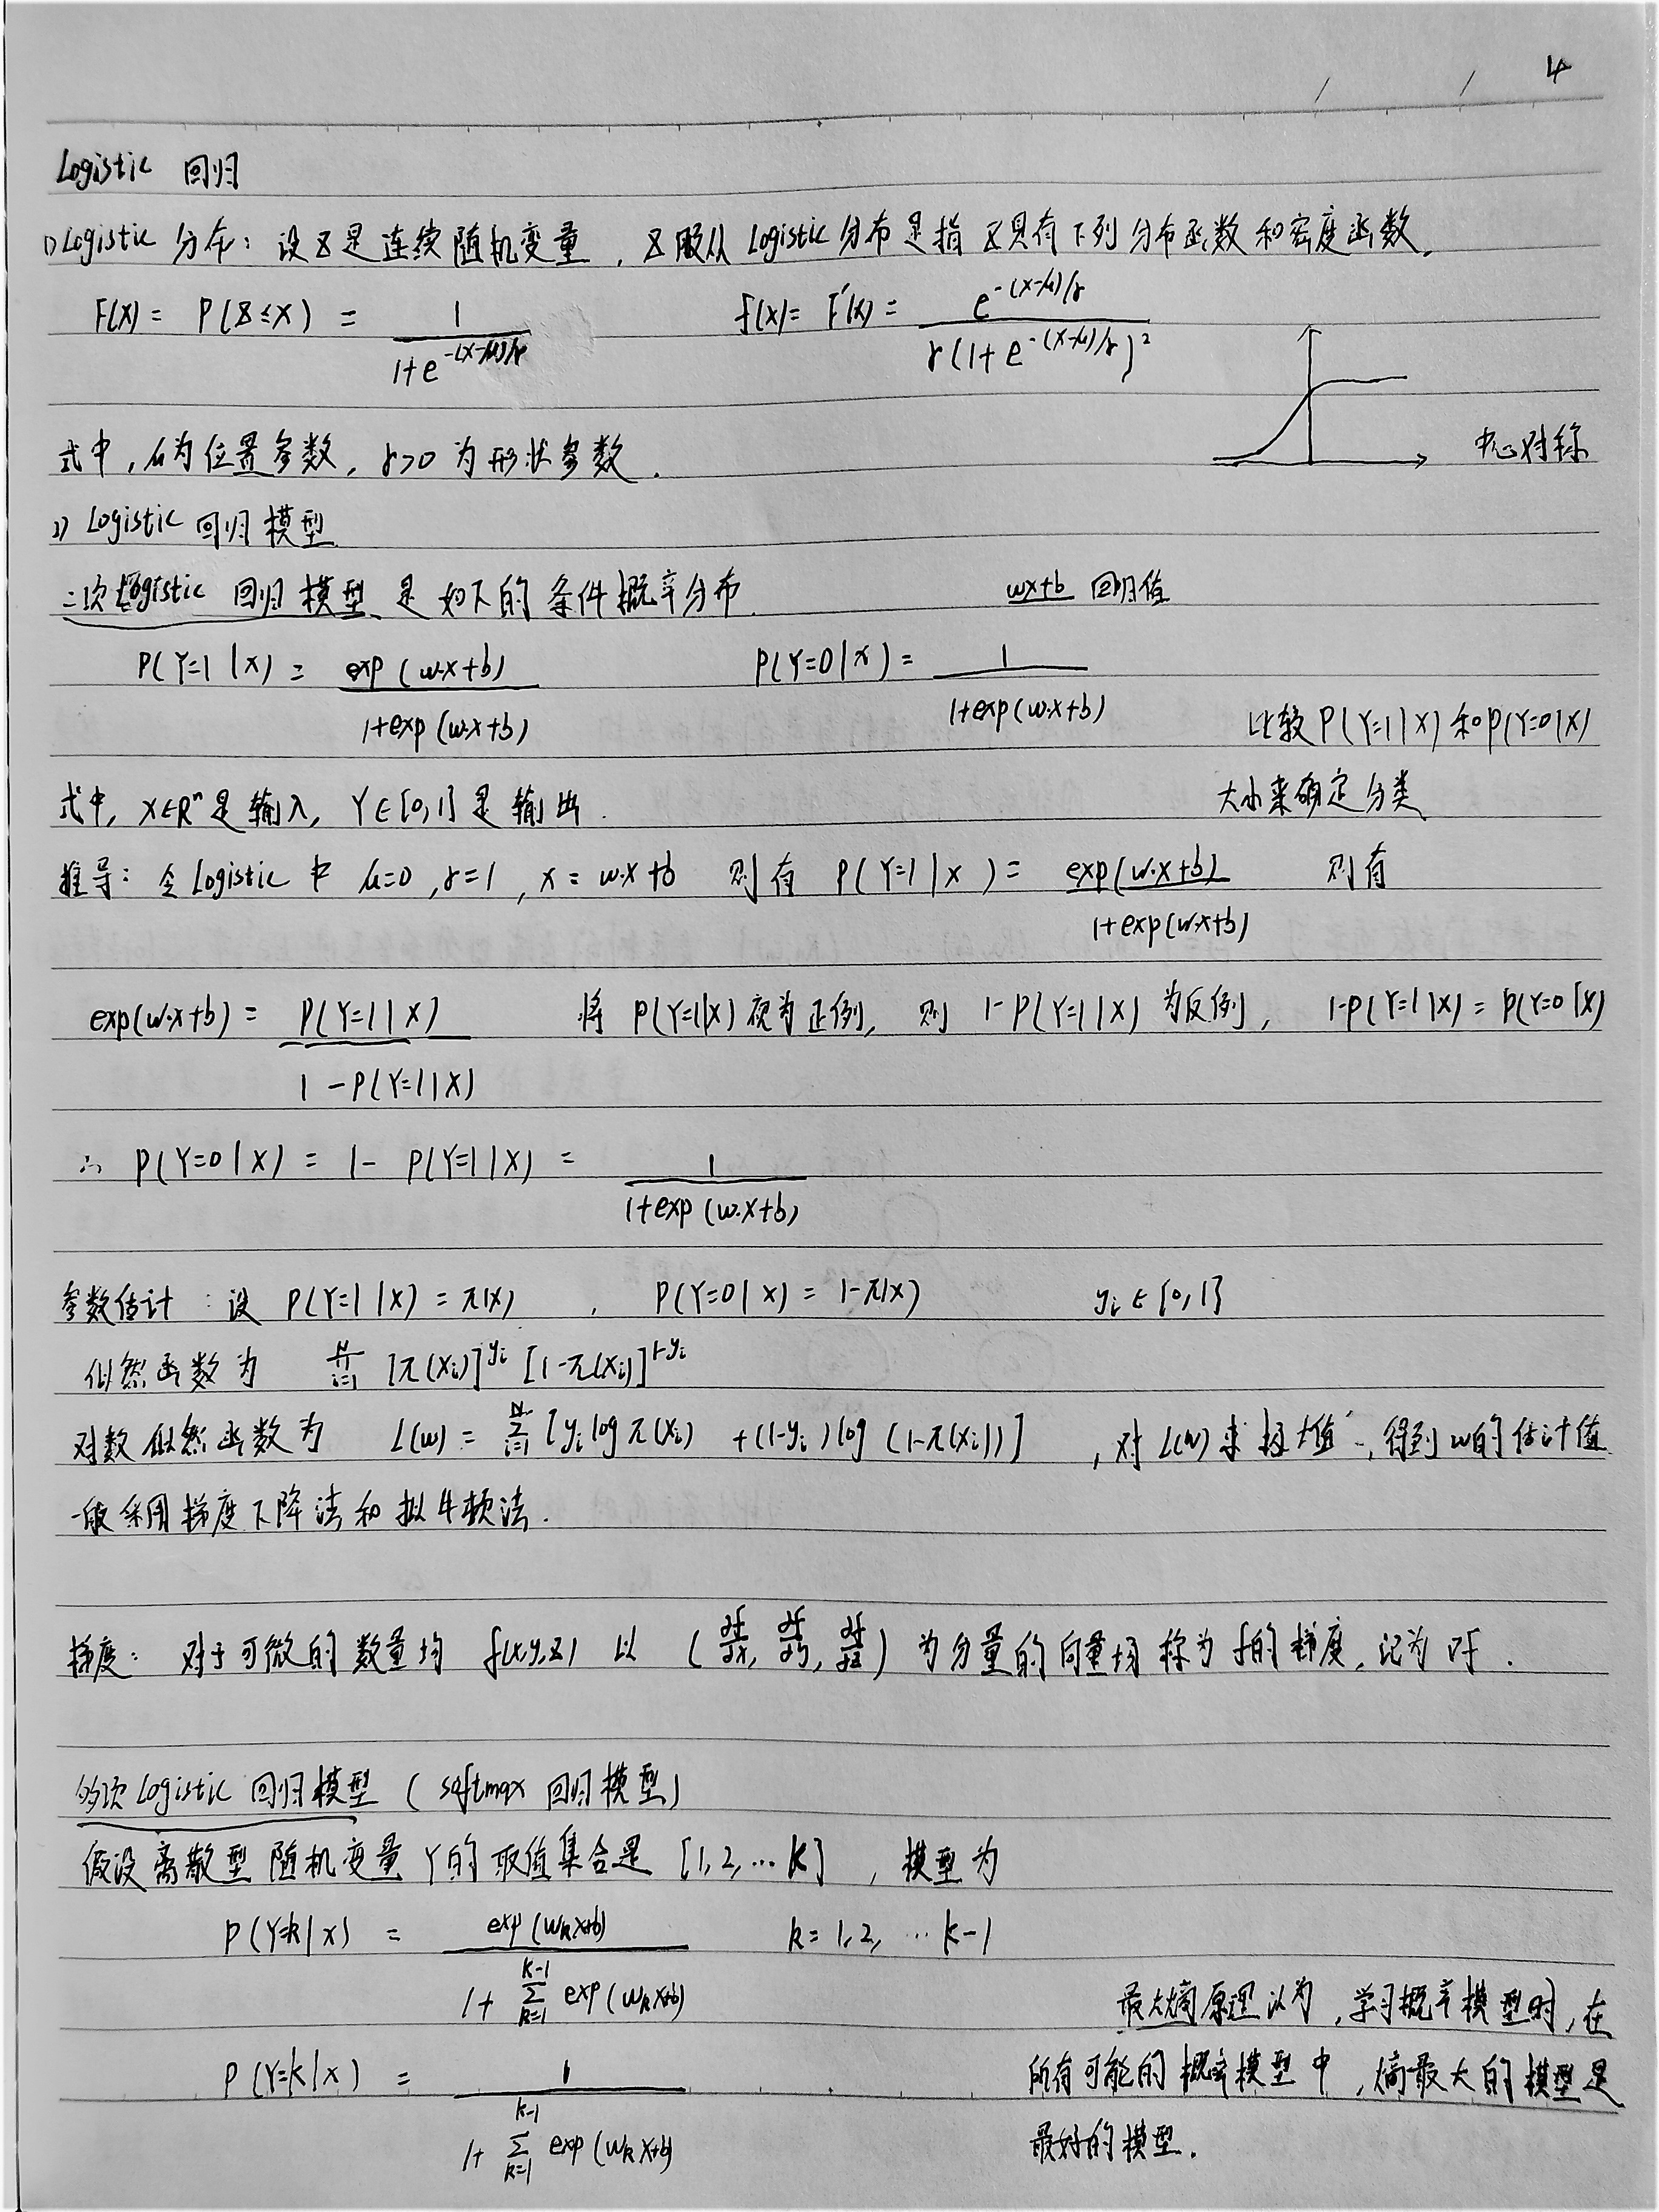 4
Logistic 回归
1) Logistic 分布：设 X 是连续随机变量，X 服从 Logistic 分布是指 X 具有下列分布函数和密度函数。
F(x) = P(X≤x) = 1 / (1+e^{-(x-μ)/γ})    f(x) = F'(x) = e^{-(x-μ)/γ} / γ(1+e^{-(x-μ)/γ})²
式中，μ为位置参数，γ>0 为形状参数．
中心对称
2) Logistic 回归模型
二次Logistic 回归模型 是如下的条件概率分布．
wx+b 回归值
P(Y=1|x) = exp(w·x+b) / (1+exp(w·x+b))    P(Y=0|x) = 1 / (1+exp(w·x+b))
比较P(Y=1|x)和P(Y=0|x)
大小来确定分类
式中，x∈Rⁿ是输入，Y∈{0,1}是输出．
推导：令 Logistic 中 μ=0，γ=1，x = w·x+b 则有 P(Y=1|x) = exp(w·x+b) / (1+exp(w·x+b)) 则有
exp(w·x+b) = P(Y=1|x) / (1-P(Y=1|x))    将 P(Y=1|x) 视为正例，则 1-P(Y=1|x) 为反例，1-P(Y=1|x) = P(Y=0|x)
∴ P(Y=0|x) = 1- P(Y=1|x) = 1 / (1+exp(w·x+b))
参数估计：设 P(Y=1|x) = π(x)，P(Y=0|x) = 1-π(x)    yᵢ∈{0,1}
似然函数为 ∏_{i=1}^{N} [π(xᵢ)]^{yᵢ} [1-π(xᵢ)]^{1-yᵢ}
对数似然函数为 L(w) = Σ_{i=1}^{N} [yᵢ log π(xᵢ) + (1-yᵢ) log (1-π(xᵢ))]，对 L(w) 求极大值，得到w的估计值
一般采用梯度下降法和拟牛顿法．
梯度：对于可微的数量场 f(x,y,z) 以 (∂f/∂x, ∂f/∂y, ∂f/∂z) 为分量的向量场称为 f的梯度，记为 ∇f．
多项Logistic 回归模型（softmax 回归模型）
假设离散型随机变量 Y的取值集合是 {1,2,…K}，模型为
P(Y=k|x) = exp(w_k x+b) / (1+ Σ_{k=1}^{K-1} exp(w_k x+b))    k=1,2,…K-1
P(Y=K|x) = 1 / (1+ Σ_{k=1}^{K-1} exp(w_k x+b))
最大熵原理认为，学习概率模型时，在
所有可能的概率模型中，熵最大的模型是
最好的模型．